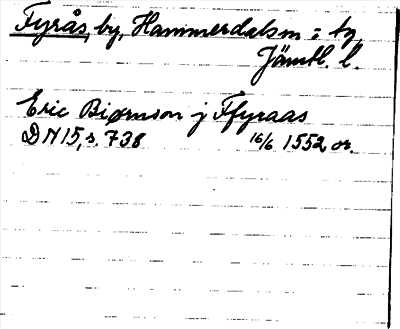 Fyrås, by, Hammerdalsm = tg
Jämtl. l.
Eric Biørnson j Ffyraas
DN 15, s. 738 16/6 1552 or.